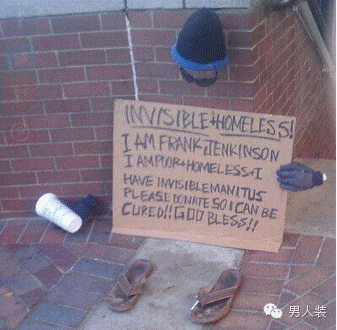 INVISIBLE+HOMELESS!
I AM FRANK JENKINSON
I AM POOR+HOMELESS+I
HAVE INVISIBLEMANITUS
PLEASE DONATE SO I CAN BE
CURED!!GOD BLESS!!
男人装